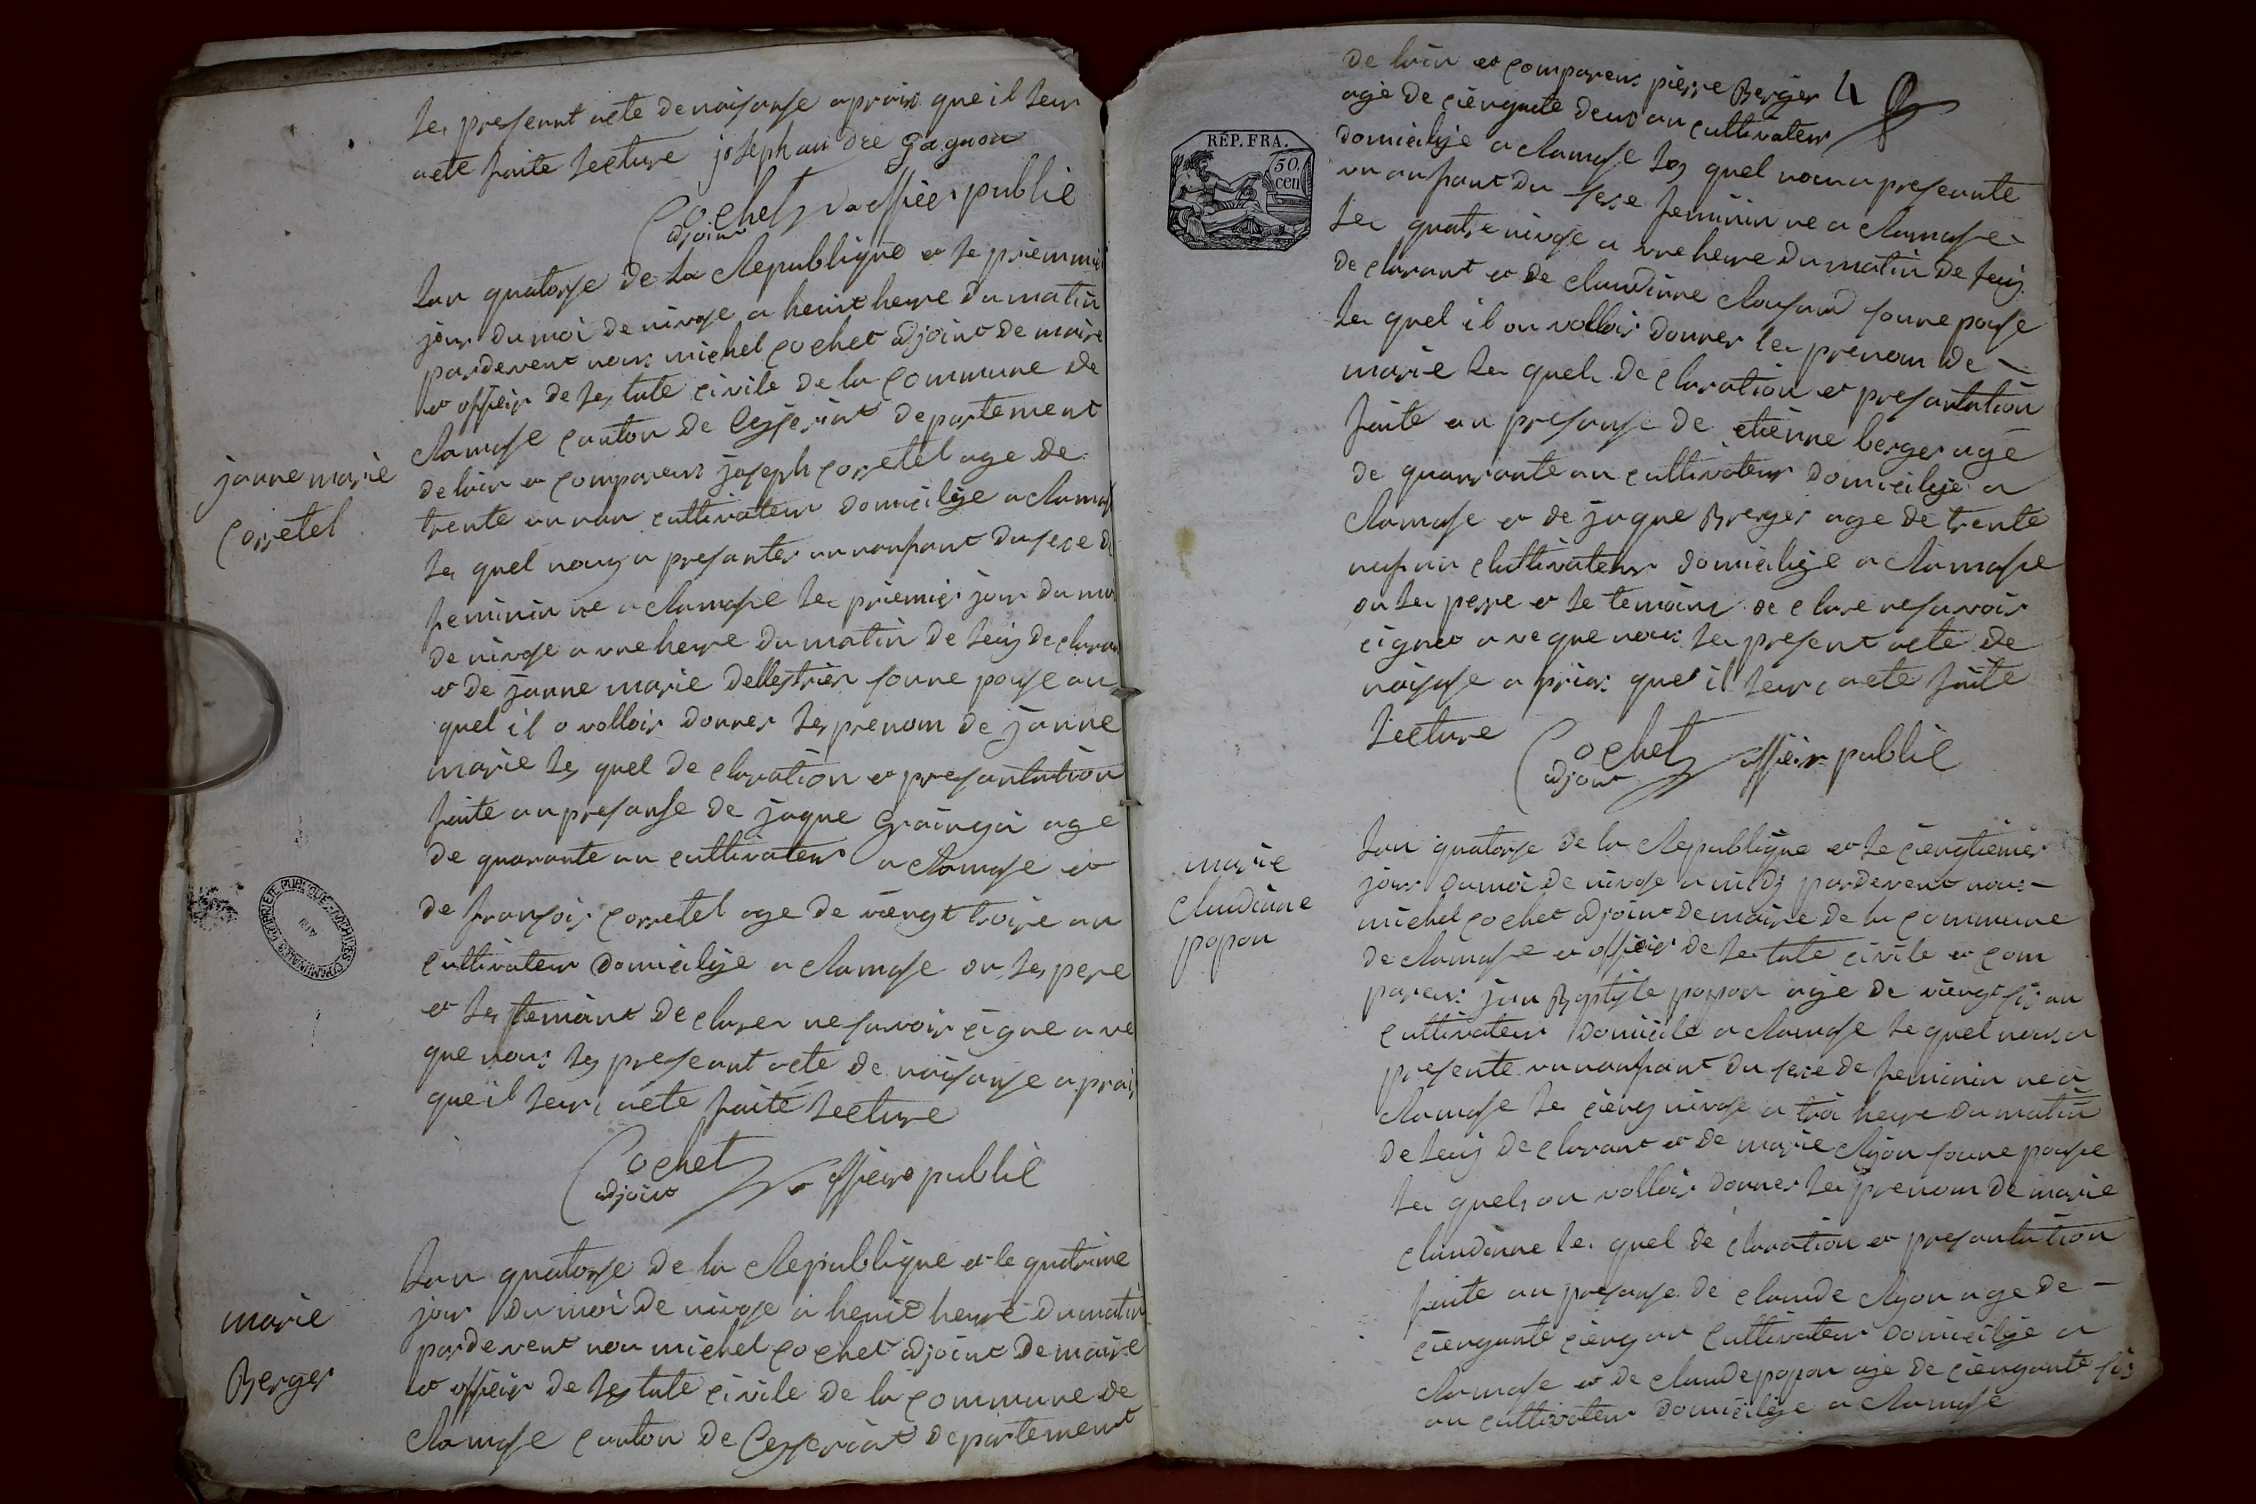 le presennt acte denaisanse aprais que il leur
acte faite lecture joseph an dré gagnon
Cochet officer public
adjoint
Lan quatorse de la Republique et le priemmie
jour du moi de nivose a heuit heure du matin
pardevent nous michel Cochet adjoint de maire
et offisier de les tate civile de la commune de
Ramase canton de Ceyseriat departement
de lain et comparens joseph corretel age de
trente un nan cultivateur domicilije a Ramas
le quel nous a presanter un nanfant du sexe de
feminin ne a Ramase le priemier jour du moi
de nivose a une heure du matin de luis declaran
et de janne marie Dellestrier sonne pouse au
quel il o volloir donner les prenom de janne
marie les quel de claration et presantation
faite an presanse de jaque Graingea age
de quarante an cultivateur a Ramase et
de fransois corretel age de viengt troise an
cultivateur domicilije a Ramase ou les pere
et les temoint declarer ne savoir cigne ave
que nous les preseant acte de naisanse aprai
que il leur acte faite lecture
Cochet offisier public
adjoint
janne marie
corretel
Lan quatorse de la Republique et le quatrime
jour du moi de nivose a heuit heure du matin
pardevent nou michel Cochet adjoint de maire
et offisier de les tate civile de la commune de
Ramase canton de Ceyseriat departement
marie
Berger
de lain et comparens pierre Berger 4
age de ciengante deus an cultivateur
domicilije a Ramase les quel nous a preseante
un anfant du sexe feminin ne a Ramase
le quatre nivose a une heure du matin de luij
de clarant et de claudinne sonne pouse
les quel il on volloir donner les prenom de
marie les quels de claration et presantation
faite an presanse de etienne berger age
de quarrante an cultivateur domicilije a
Ramase et de jaque Berger age de trente
nuf an cultivateur domicilije a Ramase
ou les perre et le temoins de clare ne savoir
cigner a ve que nous les present acte de
naisase a prais que il leur acte faite
lecture
Cochet offisier public
adjoint
RÉP. FRA.
50
cen
Lan quatorse de la Republique et le ciengtiemer
jour du moi de nivose a midi pardevent nous
michel Cochet adjoint de maire de la commune
de Ramase et offisier de les tate civile et com
parens jan Baptiste popon age de viengt sis an
cultivateur domicile a Ramase le quel nous a
presente un nanfant du sexe de feminin ne a
Ramase le cieng nivose a troi heure du matin
de luij declarant et de marie sonne pouse
les quels on volloir donner les prenom de marie
claudinne les quel de claration et presantation
faite an presanse de claude age de
ciengante cieng an cultivateur domicilije a
Ramase et de claude popon age de ciengante sis
an cultivateur domicilije a Ramase
marie
claudinne
popon